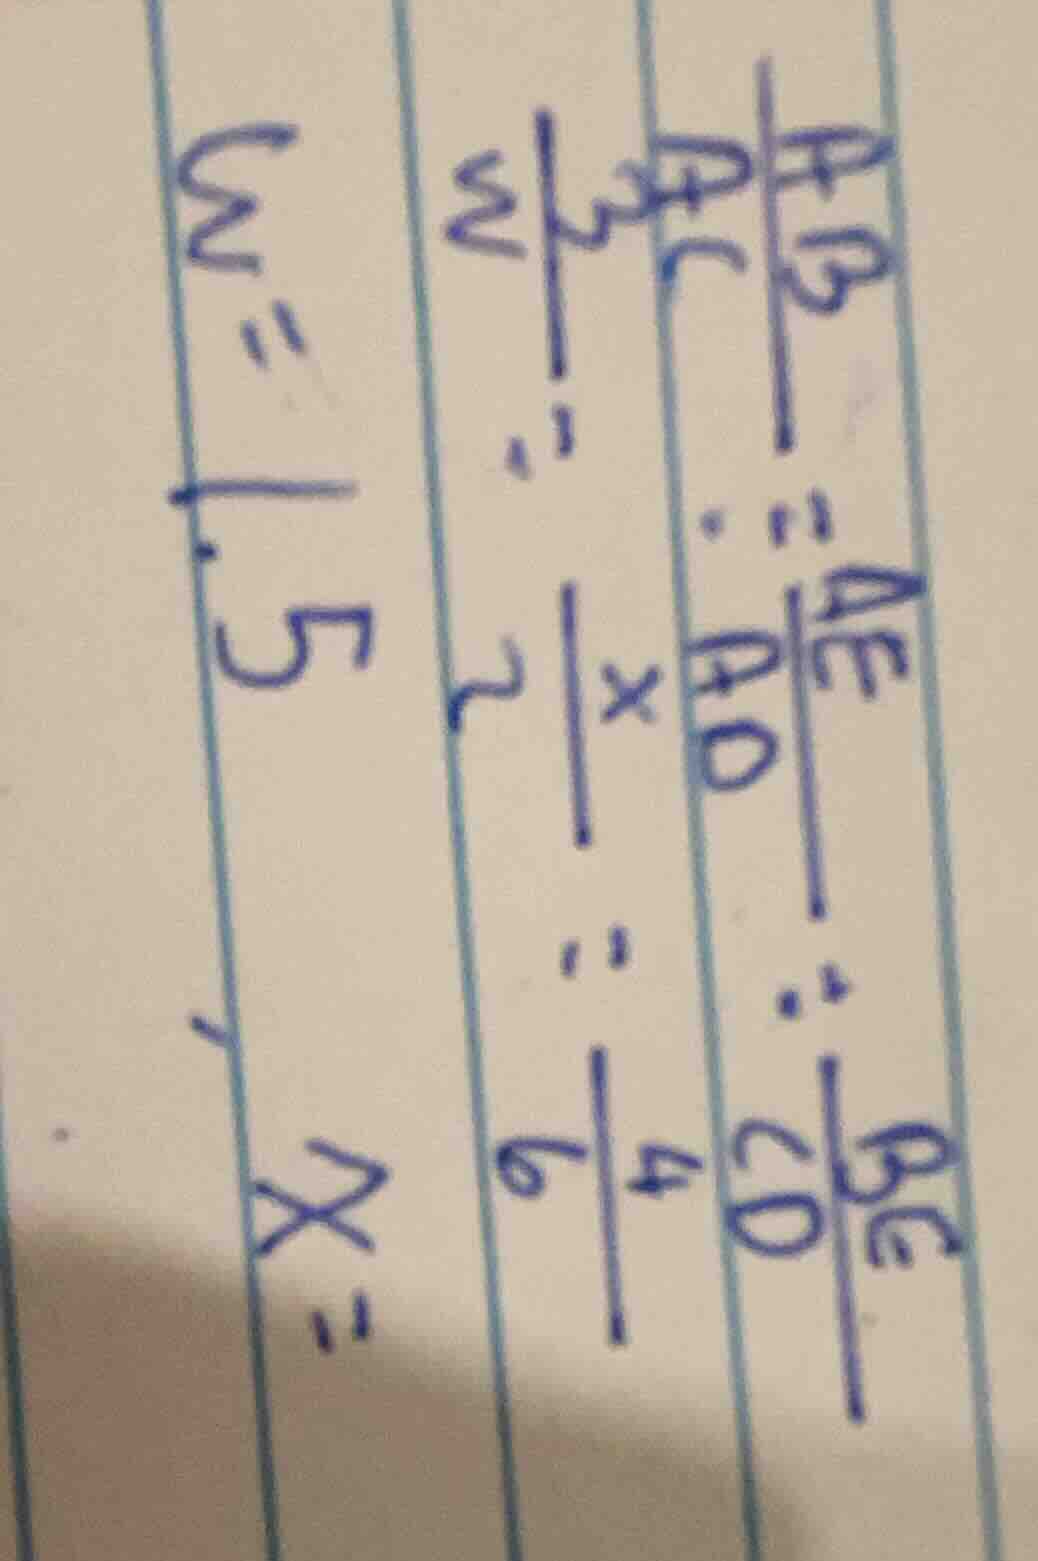 AB/AC = AE/AD = BE/CD
3/W = x/2 = 4/6
W = 1.5 , x =